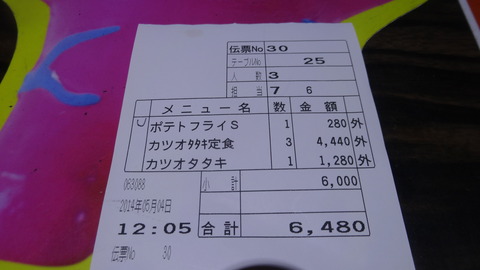 伝票No 30
テーブルNo 25
人 数 3
担 当 7 6
メニュー名 数 金 額
ポテトフライS 1 280 外
カツオタタキ定食 3 4,440 外
カツオタタキ 1 1,280 外
063088 小 計 6,000
2014年05月04日
12:05 合計 6,480
伝票No 30